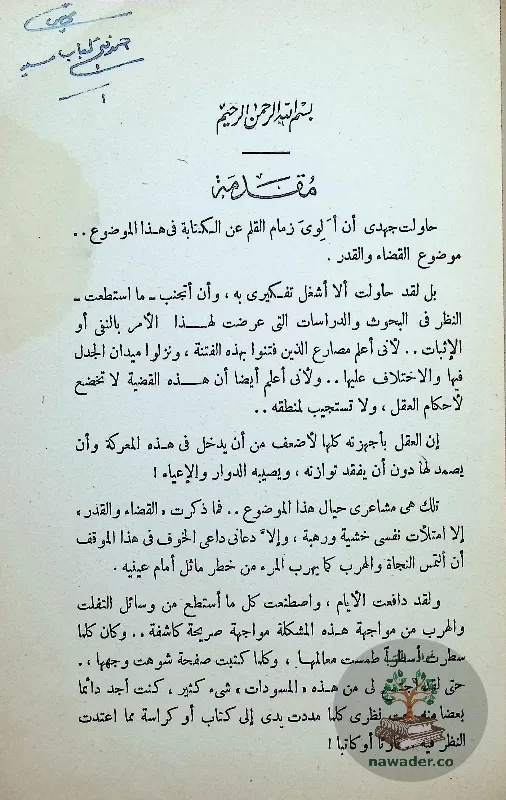 بسم الله الرحمن الرحيم
مقدمة
حاولت جهدى أن ألوىَ زمام القلم عن الكتابة فى هذا الموضوع ..
موضوع القضاء والقدر .
بل لقد حاولت ألا أشغل تفكيرى به ، وأن أتجنب ــ ما استطعت ــ
النظر فى البحوث والدراسات التى عرضت لهذا الأمر بالنفى أو
الإثبات .. لأنى أعلم مصارع الذين فتنوا بهذه الفتنة ، ونزلوا ميدان الجدل
فيها والاختلاف عليها .. ولأنى أعلم أيضا أن هذه القضية لا تخضع
لأحكام العقل ، ولا تستجيب لمنطقه ..
إن العقل بأجهزته كلها لأضعف من أن يدخل فى هذه المعركة وأن
يصمد لها دون أن يفقد توازنه ، ويصيبه الدوار والإعياء !
تلك هى مشاعرى حيال هذا الموضوع .. فما ذكرت « القضاء والقدر »
إلا امتلأت نفسى خشية ورهبة ، وإلاَّ دعانى داعى الخوف فى هذا الموقف
أن ألتمس النجاة والهرب كما يهرب المرء من خطر ماثل أمام عينيه .
ولقد دافعت الأيام ، واصطنعت كل ما أستطع من وسائل التفلت
والهرب من مواجهة هذه المشكلة مواجهة صريحة كاشفة .. وكان كلما
سطرت أسطراً طمست معالمها ، وكلما كتبت صفحة شوهت وجهها ..
حتى لقد اجتمع لى من هذه « المسودات » شىء كثير ، كنت أجد دائما
بعضا منه نظرى كلما مددت يدى إلى كتاب أو كراسة مما اعتدت
النظر فيه أو كاتبا !
nawader.co